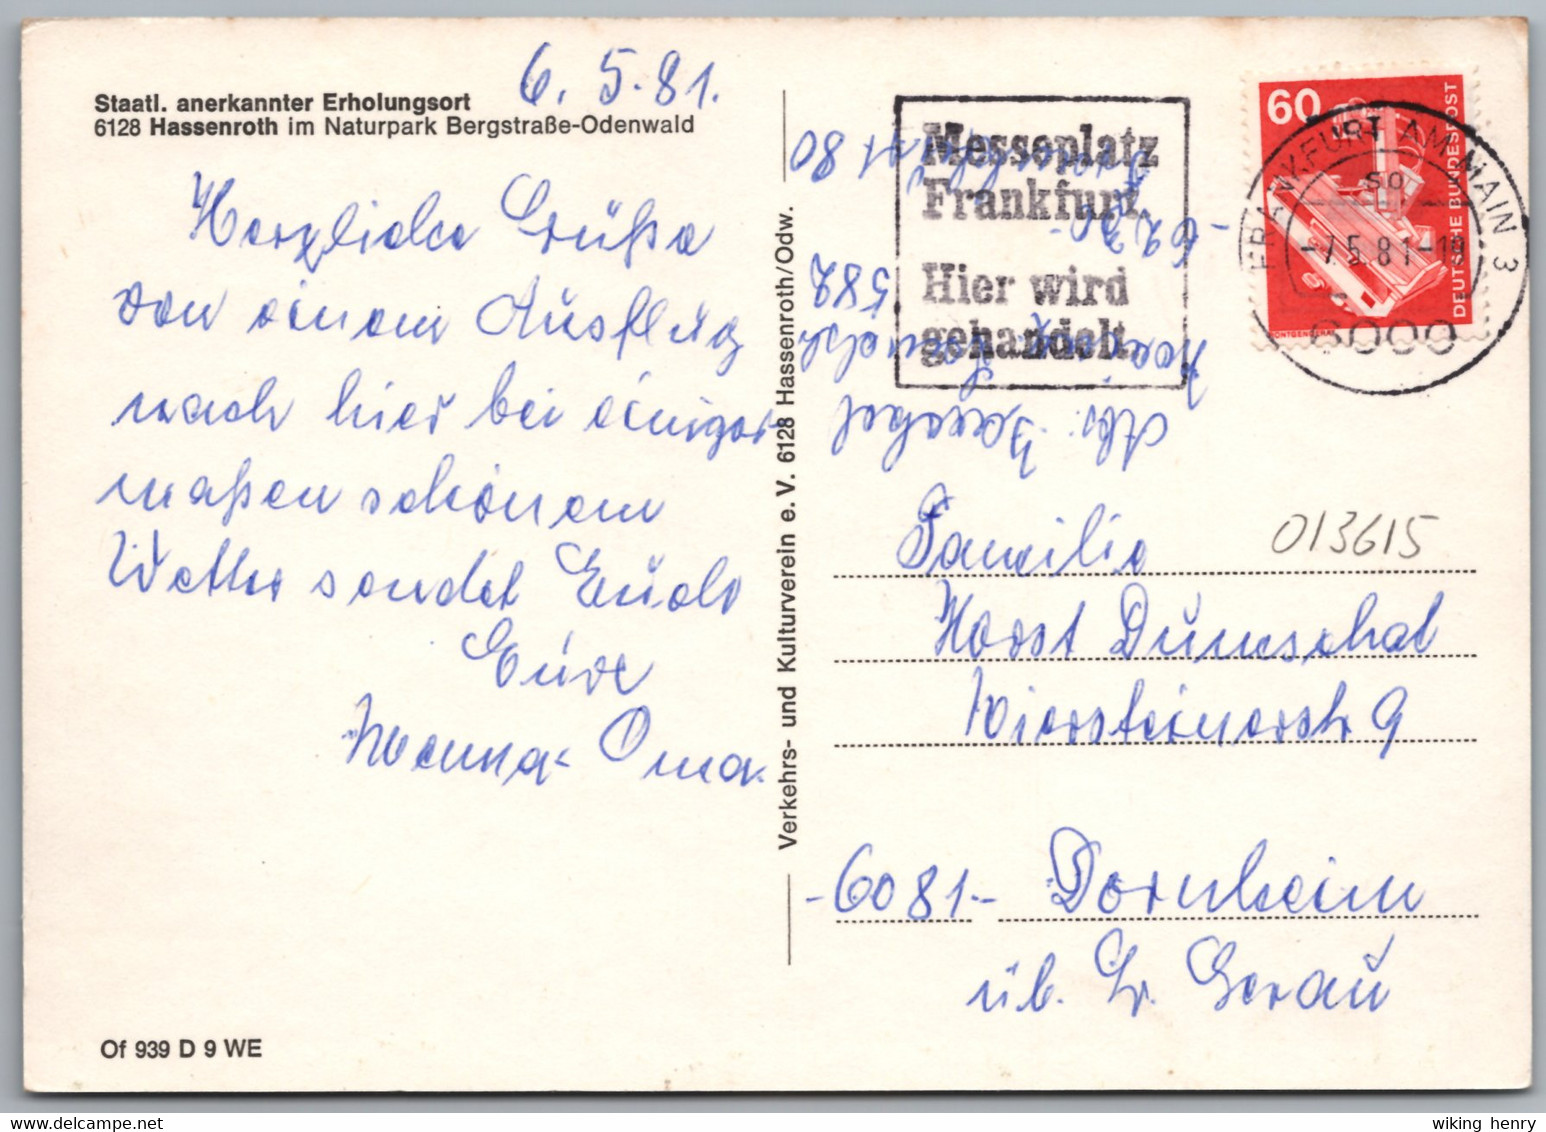 6. 5. 81.
Staatl. anerkannter Erholungsort
6128 Hassenroth im Naturpark Bergstraße-Odenwald
Herzliche Grüße
von einem Ausflug
nach hier bei einiger
maßen schönem
Wetter sendet Euch
Eure
Oma.
Of 939 D 9 WE
Verkehrs- und Kulturverein e. V. 6128 Hassenroth/Odw.
Messeplatz
Frankfurt
Hier wird
gehandelt
60
DEUTSCHE BUNDESPOST
FRANKFURT AM MAIN 3
so
-7.5.81-18
6000
80
582
013615
Familie
Horst Dumschat
9
-6081- Dornheim
üb. Gr. Gerau
wiking henry